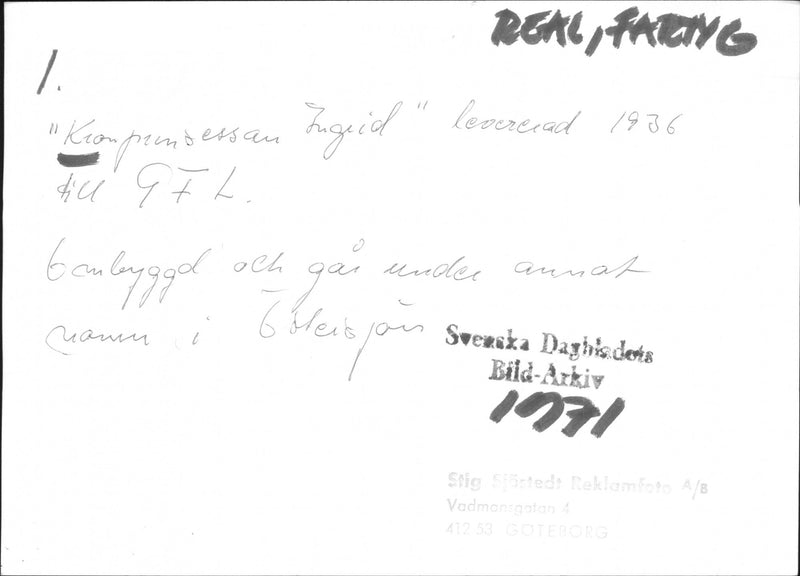 REAL, FARTYG
1.
"Kronprinsessan Ingrid" levererad 1936
till GFL.
Ombyggd och går under annat
namn i Östersjön
Svenska Dagbladets
Bild-Arkiv
1971
Stig Sjöstedt Reklamfoto A/B
Vadmansgatan 4
412 53 GÖTEBORG